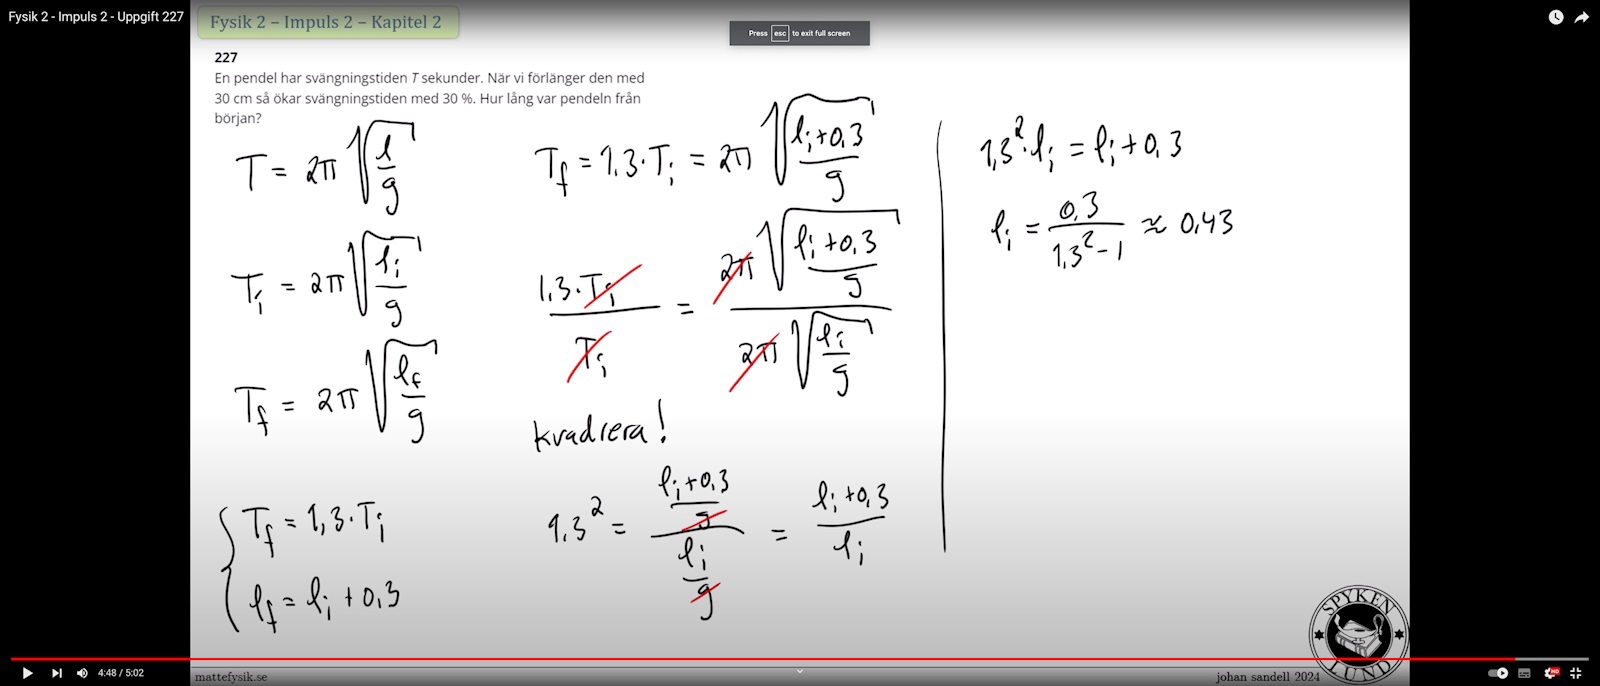 Fysik 2 - Impuls 2 - Uppgift 227
Fysik 2 – Impuls 2 – Kapitel 2
Press esc to exit full screen
227
En pendel har svängningstiden T sekunder. När vi förlänger den med
30 cm så ökar svängningstiden med 30 %. Hur lång var pendeln från
början?
T = 2π √(l/g)
T_i = 2π √(l_i/g)
T_f = 2π √(l_f/g)
{ T_f = 1,3 · T_i
l_f = l_i + 0,3
T_f = 1,3 · T_i = 2π √((l_i + 0,3)/g)
(1,3 · T_i)/T_i = (2π √((l_i + 0,3)/g))/(2π √(l_i/g))
kvadrera!
1,3² = ((l_i + 0,3)/g)/(l_i/g) = (l_i + 0,3)/l_i
1,3² · l_i = l_i + 0,3
l_i = 0,3/(1,3² - 1) ≈ 0,43
SPYKEN
LUND
4:48 / 5:02
HD
mattefysik.se
johan sandell 2024